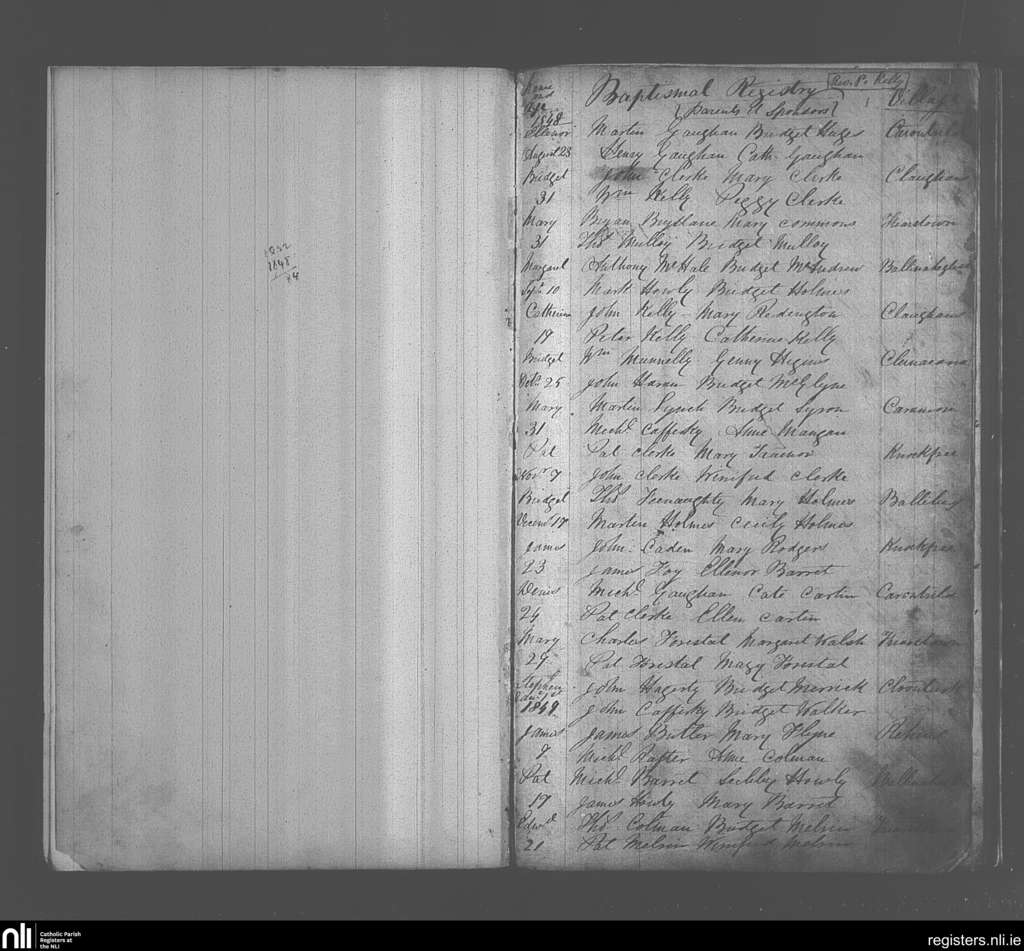 1848
84
Name and
Baptismal Registry
Rev. P. Kelly
{Parents & Sponsors}
Village
1848
Ellenor Martin Gaughan Bridget Hages
August 23 Henry Gaughan Cath. Gaughan
Bridget John Clerke Mary Clerke Claughans
31 Wm Kelly Peggy Clerke
Mary Bryan Mary Commons
31 Thos Mulloy Bridget Mulloy
Margaret Anthony McHale Bridget McAndrew
Sept. 10 Mark Howly Bridget Holmes
Catherine John Kelly Mary Redington Claughans
19 Peter Kelly Catherine Kelly
Bridget Wm Munnelly Genny Higins
Octr 25 John Haran Bridget McGlyne
Mary Martin Lynch Bridget Syron
31 Michl Cafferky Anne Mangan
Pat Pat Clerke Mary Trainor Knockfree
Novr 7 John Clerke Winifred Clerke
Bridget Thos Feenaughty Mary Holmes
Decemr 17 Martin Holmes Cecily Holmes
James John Caden Mary Rodgers Knockfree
23 James Foy Ellenor Barret
Denis Michl Gaughan Cate Cartin
24 Pat Clerke Ellen Cartin
Mary Charles Forestal Margaret Walsh
29 Pat Forestal Mary Forestal
Stephen John Hagerty Bridget Merrick
1849 John Cafferky Bridget Walker
James James Butler Mary Flyne Rehins
7 Michl Rafter Anne Colman
Pat Michl Barret Howly
17 James Howly Mary Barret
Edwd Thos Colman Bridget Melvin
21 Pat Melvin Winifred Melvin
nli
Catholic Parish
Registers at
the NLI
registers.nli.ie